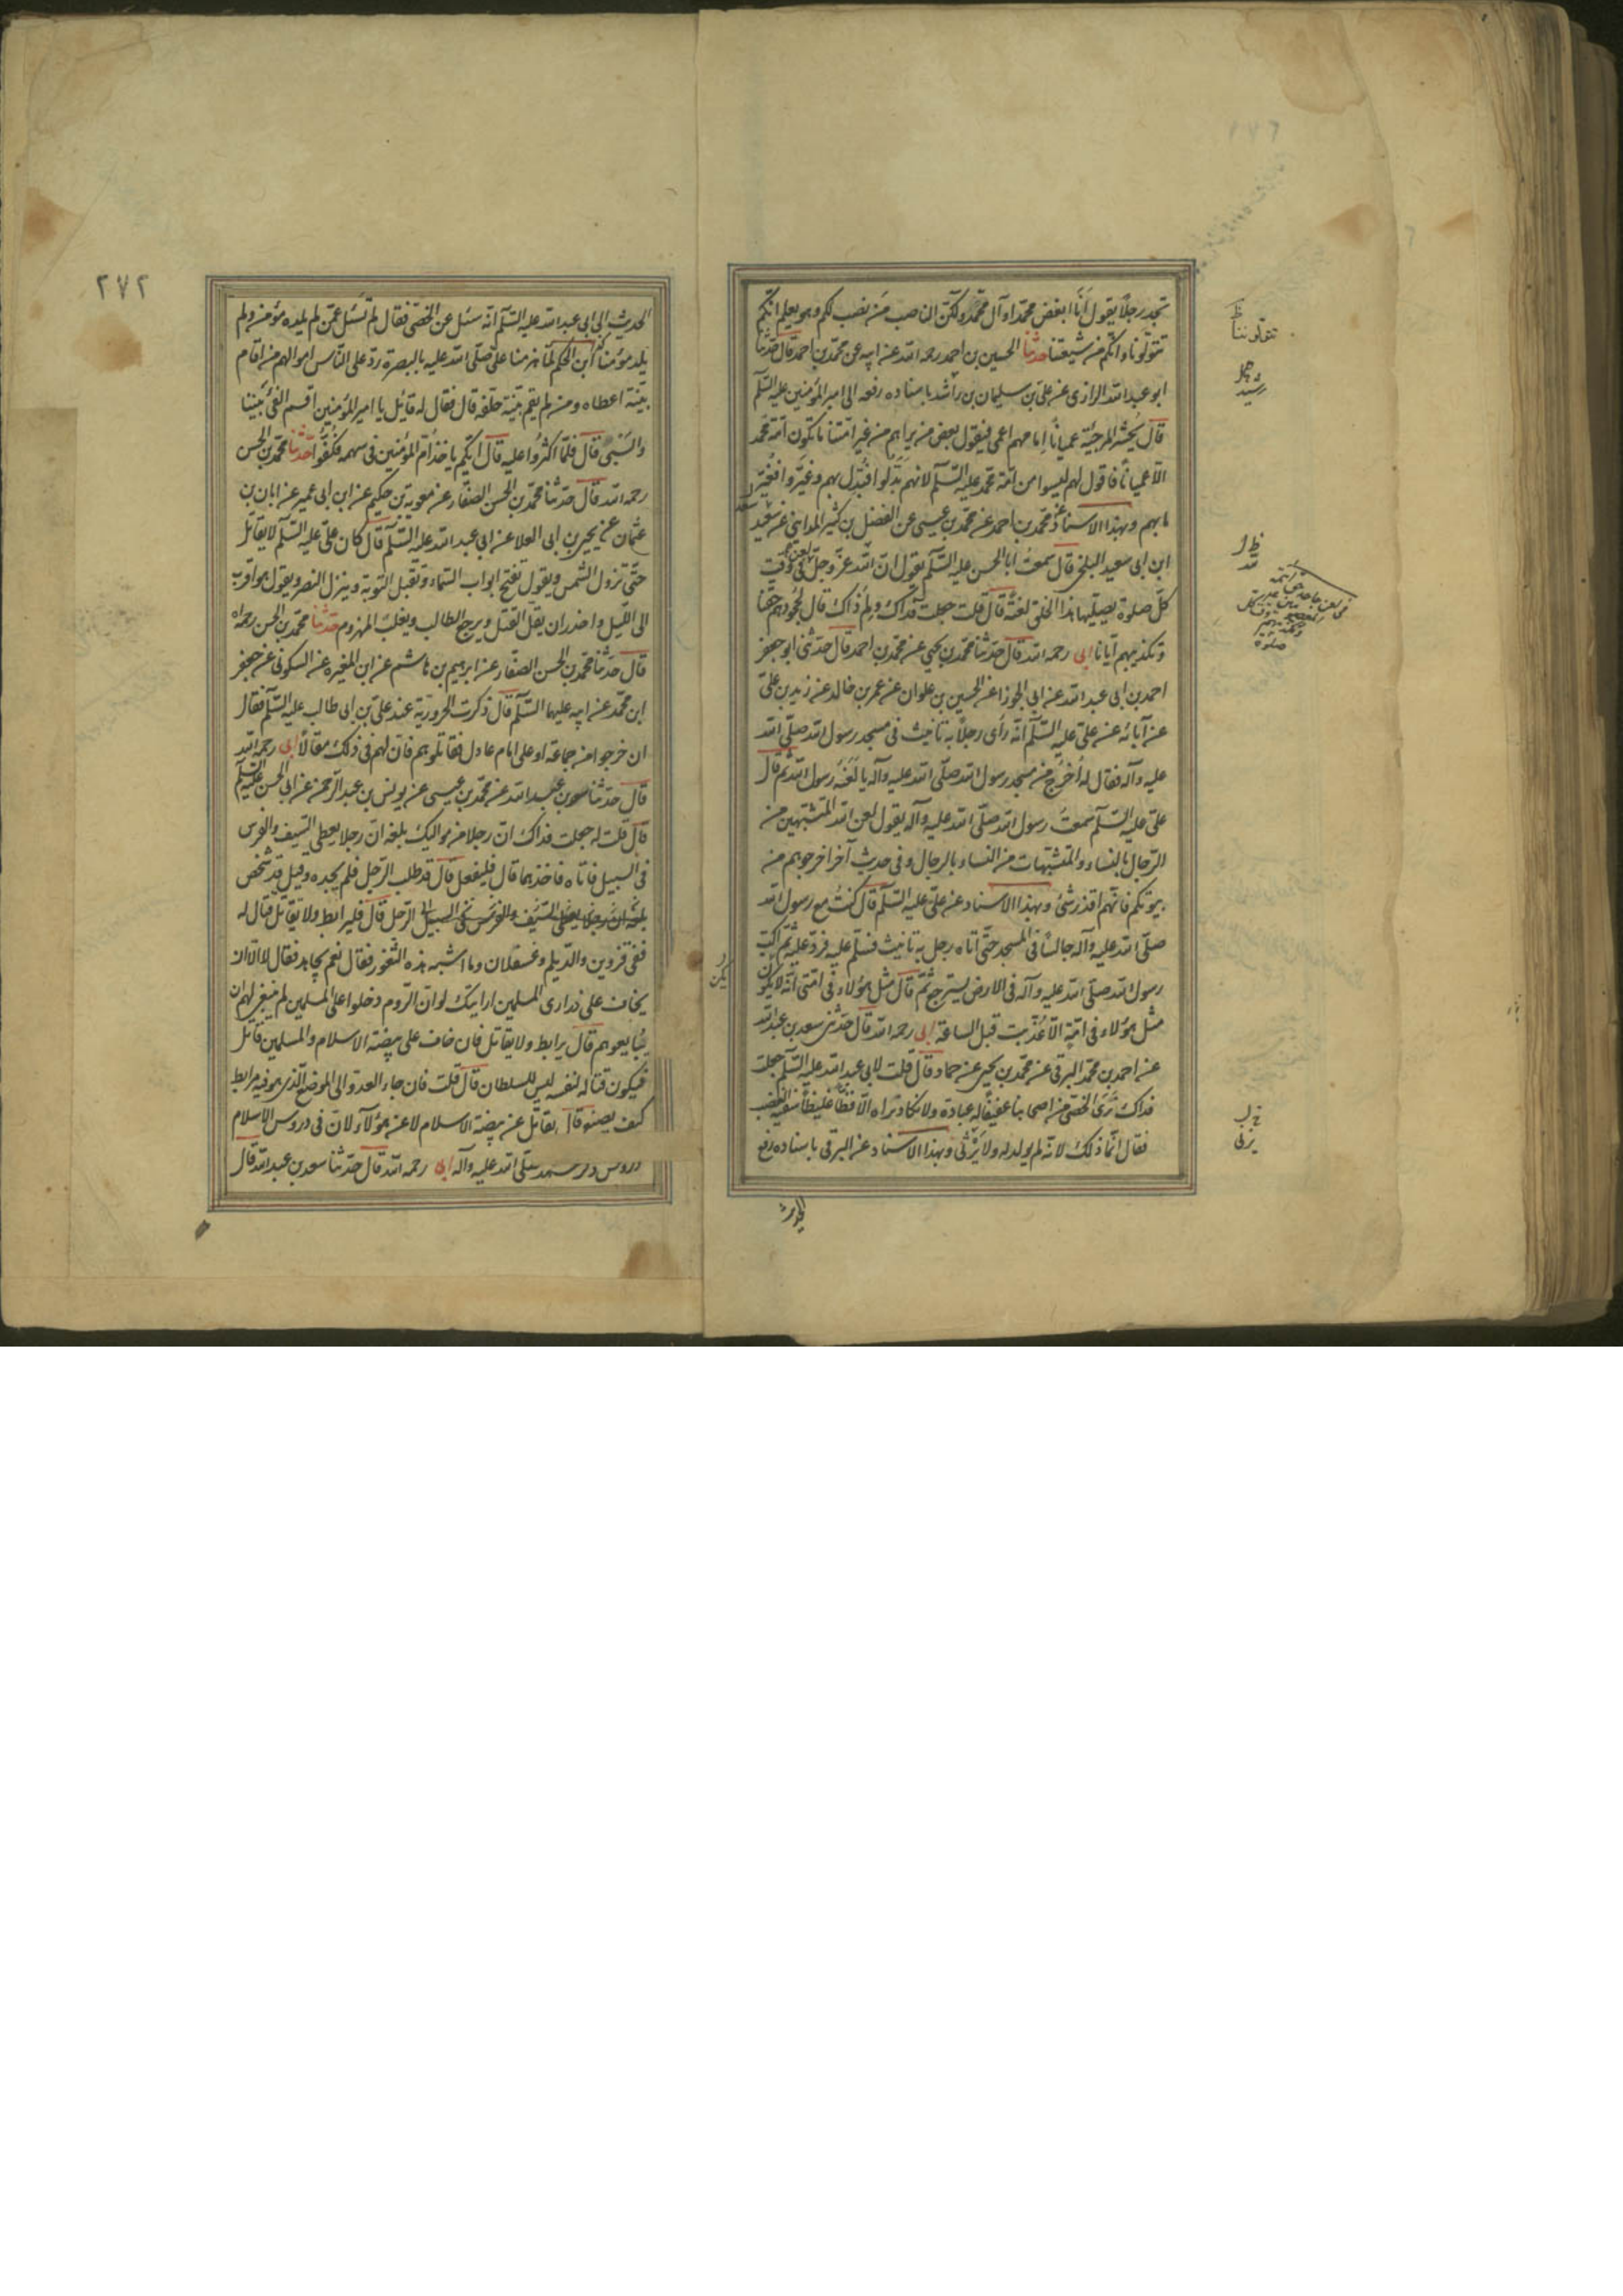 تجد رجلا يقول انا ابغض محمدا وآل محمد ولكن الناصب من نصب لكم وهو يعلم انكم
تتولونا وانكم من شيعتنا حدثنا الحسين بن احمد رحمه الله عن ابيه عن محمد بن احمد قال حدثنا
ابو عبد الله الرازى عن على بن سليمان بن راشد باسناده رفعه الى امير المؤمنين عليه السلم
قال يحشر المرجئة عميانا امامهم اعمى فيقول بعض من يراهم من غير امتنا ما تكون امة محمد
الا عميانا فاقول لهم ليسوا من امة محمد عليه السلم لانهم بدلوا فبدل بهم وغيروا فغير
ما بهم وبهذا الاسناد عن محمد بن احمد عن محمد بن عيسى عن الفضل بن كثير المداينى عن سعيد
ابن ابى سعيد البلخى قال سمعت ابا الحسن عليه السلم يقول ان لله عز وجل فى وقت
كل صلوة يصليها هذا الخلق لعنة قال قلت جعلت فداك ولم ذاك قال لجحودهم حقنا
وتكذيبهم ايانا ابى رحمه الله قال حدثنا محمد بن يحيى عن محمد بن احمد قال حدثنى ابو جعفر
احمد بن ابى عبد الله عن ابى الجوزا عن الحسين بن علوان عن عمر بن خالد عن زيد بن على
عن آبائه عن على عليه السلم انه رأى رجلا به تانيث فى مسجد رسول الله صلى الله
عليه وآله فقال له اخرج من مسجد رسول الله صلى الله عليه وآله يا لعنة رسول الله ثم قال
على عليه السلم سمعت رسول الله صلى الله عليه وآله يقول لعن الله المتشبهين من
الرجال بالنساء والمتشبهات من النساء بالرجال وفى حديث آخر اخرجوهم من
بيوتكم فانهم اقذر شئ وبهذا الاسناد عن على عليه السلم قال كنت مع رسول الله
صلى الله عليه وآله جالسا فى المسجد حتى اتاه رجل به تانيث فسلم عليه فرد عليه ثم اكب
رسول الله صلى الله عليه وآله فى الارض يسترجع ثم قال مثل هؤلاء فى امتى انه لا يكون
مثل هؤلاء فى امة الا عذبت قبل الساعة ابى رحمه الله قال حدثنى سعد بن عبد الله
عن احمد بن محمد البرقى عن محمد بن يحيى عن حماد قال قلت لابى عبد الله عليه السلم جعلت
فداك نرى الخصى من اصحابنا عفيفا له عبادة ولا نكاد نراه الا فظا غليظا سفيه الغضب
فقال انما ذلك لانه لم يولد له ولا يزنى وبهذا الاسناد عن البرقى باسناده رفع
الحديث
تتولوننا
٢٧٢
الحديث الى ابى عبد الله عليه السلم انه سئل عن الخصى فقال لم تسئل عمن لم يلده مؤمن ولم
يلد مؤمنا ابن الحكم لما هزمنا على صلى الله عليه بالبصرة رد على الناس اموالهم من اقام
بينة اعطاه ومن لم يقم بينة حلفه قال فقال له قائل يا امير المؤمنين اقسم الفئ بيننا
والسبى قال فلما اكثروا عليه قال ايكم ياخذ ام المؤمنين فى سهمه فكفوا حدثنا محمد بن الحسن
رحمه الله قال حدثنا محمد بن الحسن الصفار عن معوية بن حكيم عن ابن ابى عمير عن ابان بن
عثمان عن يحيى بن ابى العلا عن ابى عبد الله عليه السلم قال كان على عليه السلم لا يقاتل
حتى تزول الشمس ويقول تفتح ابواب السماء وتقبل التوبة وينزل النصر ويقول هو اقرب
الى الليل واجدر ان يقل القتل ويرجع الطالب ويفلت المهزوم حدثنا محمد بن الحسن رحمه الله
قال حدثنا محمد بن الحسن الصفار عن ابرهيم بن هاشم عن ابن المغيرة عن السكونى عن جعفر
ابن محمد عن ابيه عليهما السلم قال ذكرت الحرورية عند على بن ابى طالب عليه السلم فقال
ان خرجوا من جماعة او على امام عادل فقاتلوهم فان لهم فى ذلك مقالا ابى رحمه الله
قال حدثنا سعد بن عبد الله عن محمد بن عيسى عن يونس بن عبد الرحمن عن ابى الحسن عليه السلم
قال قلت له جعلت فداك ان رجلا من مواليك بلغه ان رجلا يعطى السيف والفرس
فى السبيل فاتاه فاخذهما قال فليفعل قال قد طلب الرجل فلم يجده وقيل قد شخص
بلغه ان رجلا يعطى السيف والفرس فى السبيل الرجل قال فليرابط ولا يقاتل قال له
ففى قزوين والديلم وعسقلان وما اشبه هذه الثغور فقال نعم يجاهد فقال لا الا ان
يخاف على ذرارى المسلمين ارايتك لو ان الروم دخلوا على المسلمين لم ينبغ لهم ان
يتابعوهم قال يرابط ولا يقاتل فان خاف على بيضة الاسلام والمسلمين قاتل
فيكون قتاله لنفسه ليس للسلطان قال قلت فان جاء العدو الى الموضع الذى هو فيه مرابط
كيف يصنع قال يقاتل عن بيضة الاسلام لا عن هؤلاء لان فى دروس الاسلام
دروس ذكر محمد صلى الله عليه وآله ابى رحمه الله قال حدثنا سعد بن عبد الله قال